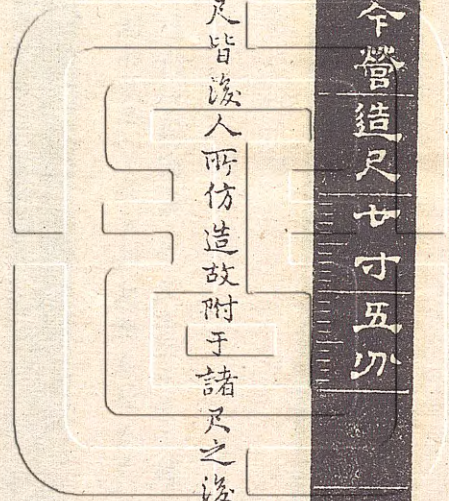 今營造尺七寸五分
尺皆後人所仿造故附于諸尺之後